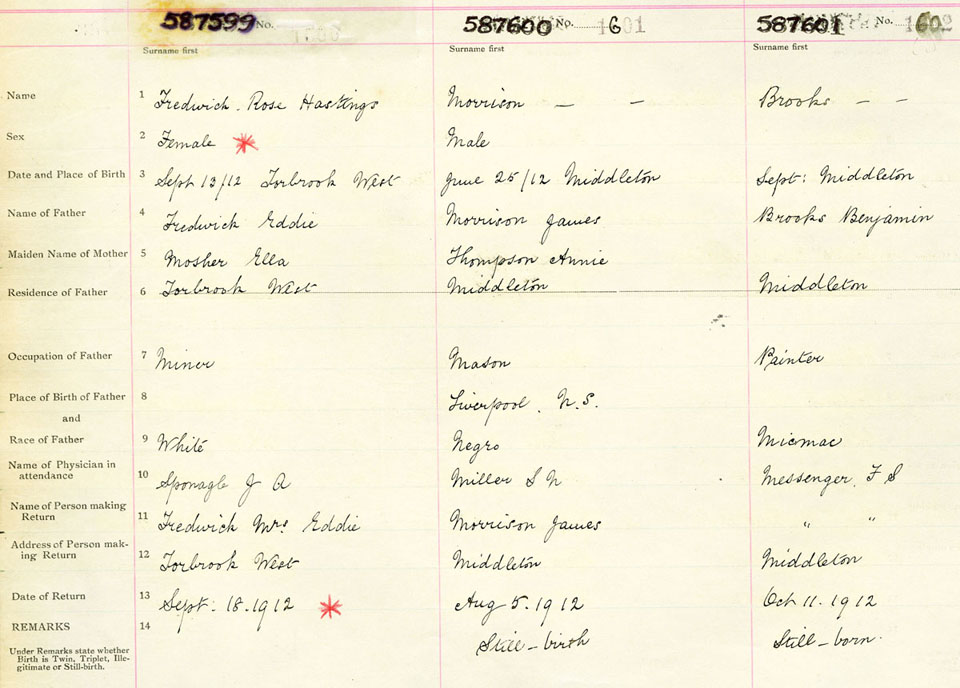 587599 No. 587600 No. 6 1601 587601 No. 1602
Surname first Surname first Surname first
Name 1 Fredwick. Rose Hastings Morrison — — Brooks — —
Sex 2 Female * Male
Date and Place of Birth 3 Sept 13/12 Torbrook West June 25/12 Middleton Sept: Middleton
Name of Father 4 Fredwick Eddie Morrison James Brooks Benjamin
Maiden Name of Mother 5 Mosher Ella Thompson Annie
Residence of Father 6 Torbrook West Middleton Middleton
Occupation of Father 7 Miner Mason Painter
Place of Birth of Father 8 Liverpool, N.S.
and
Race of Father 9 White Negro Micmac
Name of Physician in
attendance 10 Sponagle J A Miller S N Messenger, F S
Name of Person making
Return 11 Fredwick Mrs Eddie Morrison James " "
Address of Person mak-
ing Return 12 Torbrook West Middleton Middleton
Date of Return 13 Sept: 18.1912 * Aug 5.1912 Oct 11.1912
REMARKS 14 Still-birth Still-born.
Under Remarks state whether
Birth is Twin, Triplet, Ille-
gitimate or Still-birth.